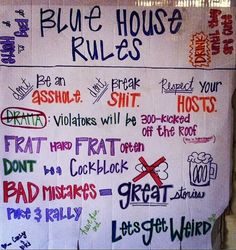 BLUE HOUSE
RULES
don't Be an ASSHOLE.
don't Break SHIT.
Respect your HOSTS.
DRAMA: Violators will be 300-kicked
off the Roof
FRAT HARD FRAT often
DONT be a Cockblock
BAD MISTAKES = GREAT stories
PUKE & RALLY
Lets get Weird